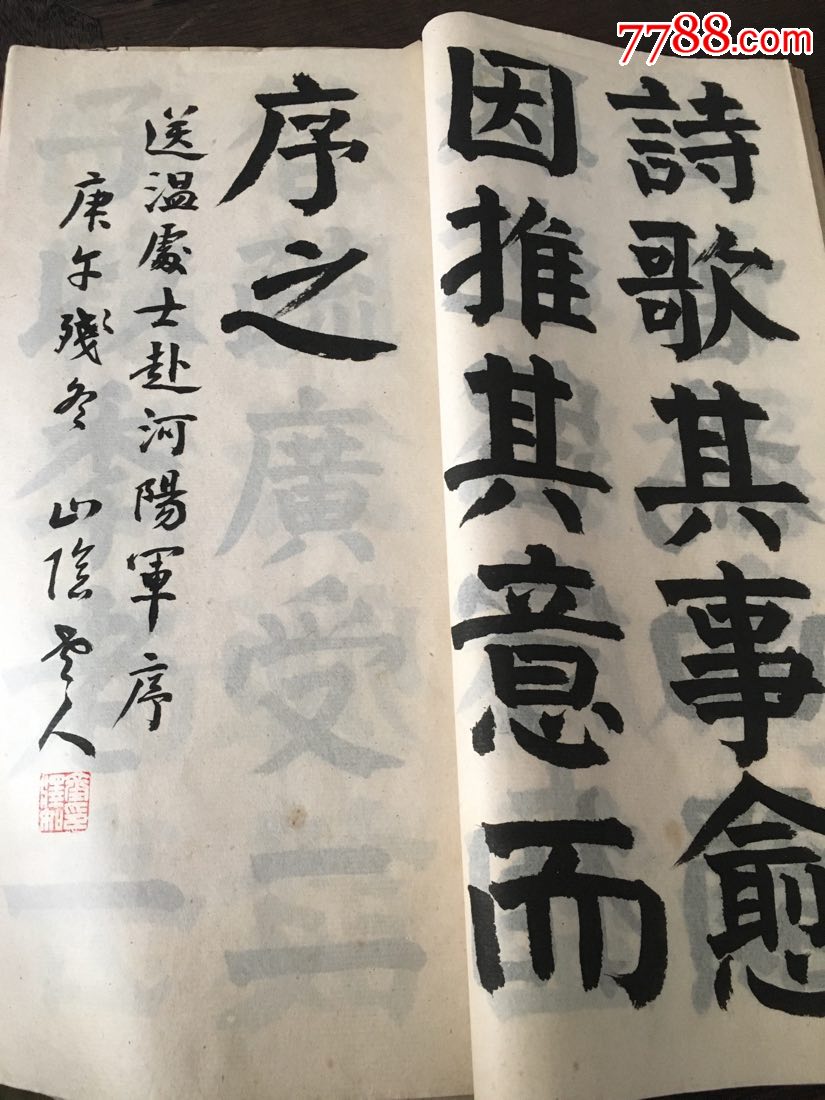 7788.com
詩歌其事愈
因推其意而
序之
送溫處士赴河陽軍序
庚午殘冬 山陰老人